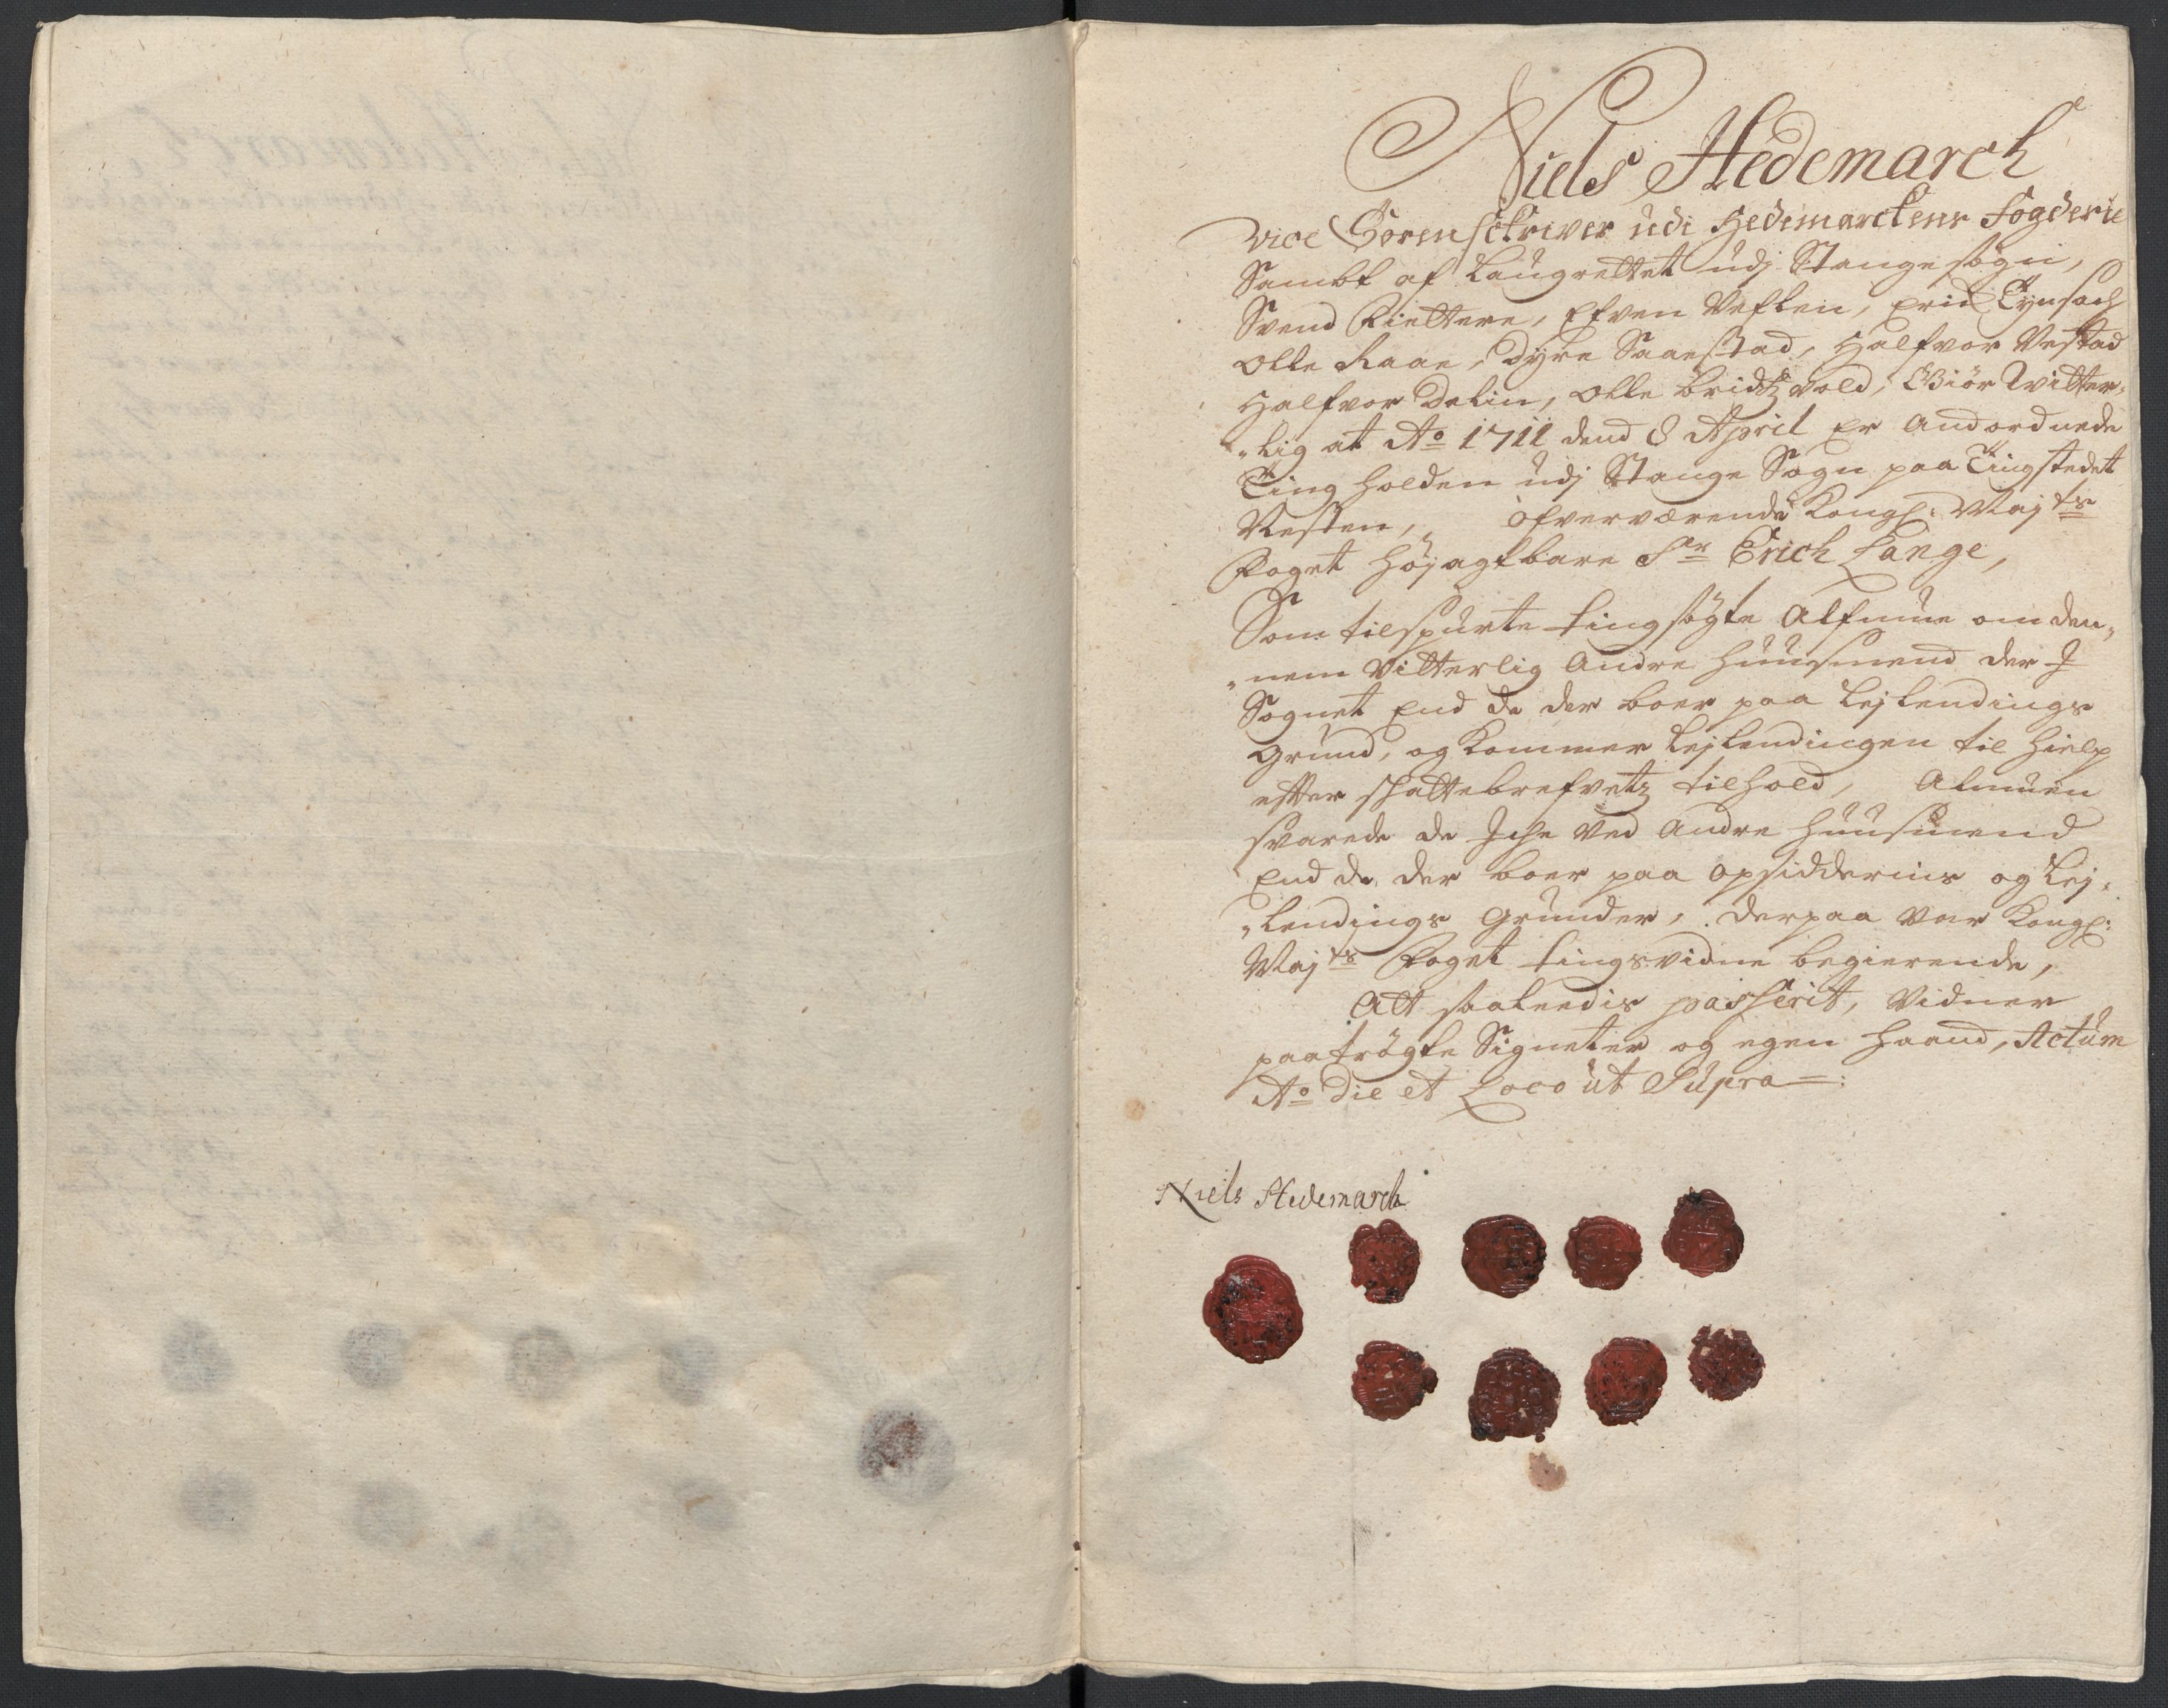 Niels Hedemarch
Vice Sorenschriver udi Hedemarckens Fogderie
Sambt af Laugrettet udj Stange sogn,
Svend Kiettere, Efven Veflen, Erich Tynsach
Olle Raae, Dyre Saaestad, Halfvor Vestad
Halfvor Delin, Olle Bridtzvold, Giör Witter-
„lig at Ao 1711 dend 8 April er Andordnede
Ting holden udj Stange Sogn paa Tingstedet
Nesten, ofverværende Kongl: Majts
Foget höjagtbare Sr Erich Lange,
Som tilspurte tingsögte Almue om den„
„nem Vitterlig Andre huusmend der J
Sognet End de der boer paa Lejlendings
Grund, og kommer Lejlendingen til hielp
efter schattebrefvetz tilhold, Almuen
svarede de Jche Ved Andre huusmend
End de der boer paa opsidderens og Lej„
„lendings Grunder, derpaa var Kongl:
Majts Foget tingsvidne begierende,
Att saaleedis passerit, Vidner
paatrögte Signeter og egen haand, Actum
Ao Die et Loco ut Supra
Niels Hedemarch